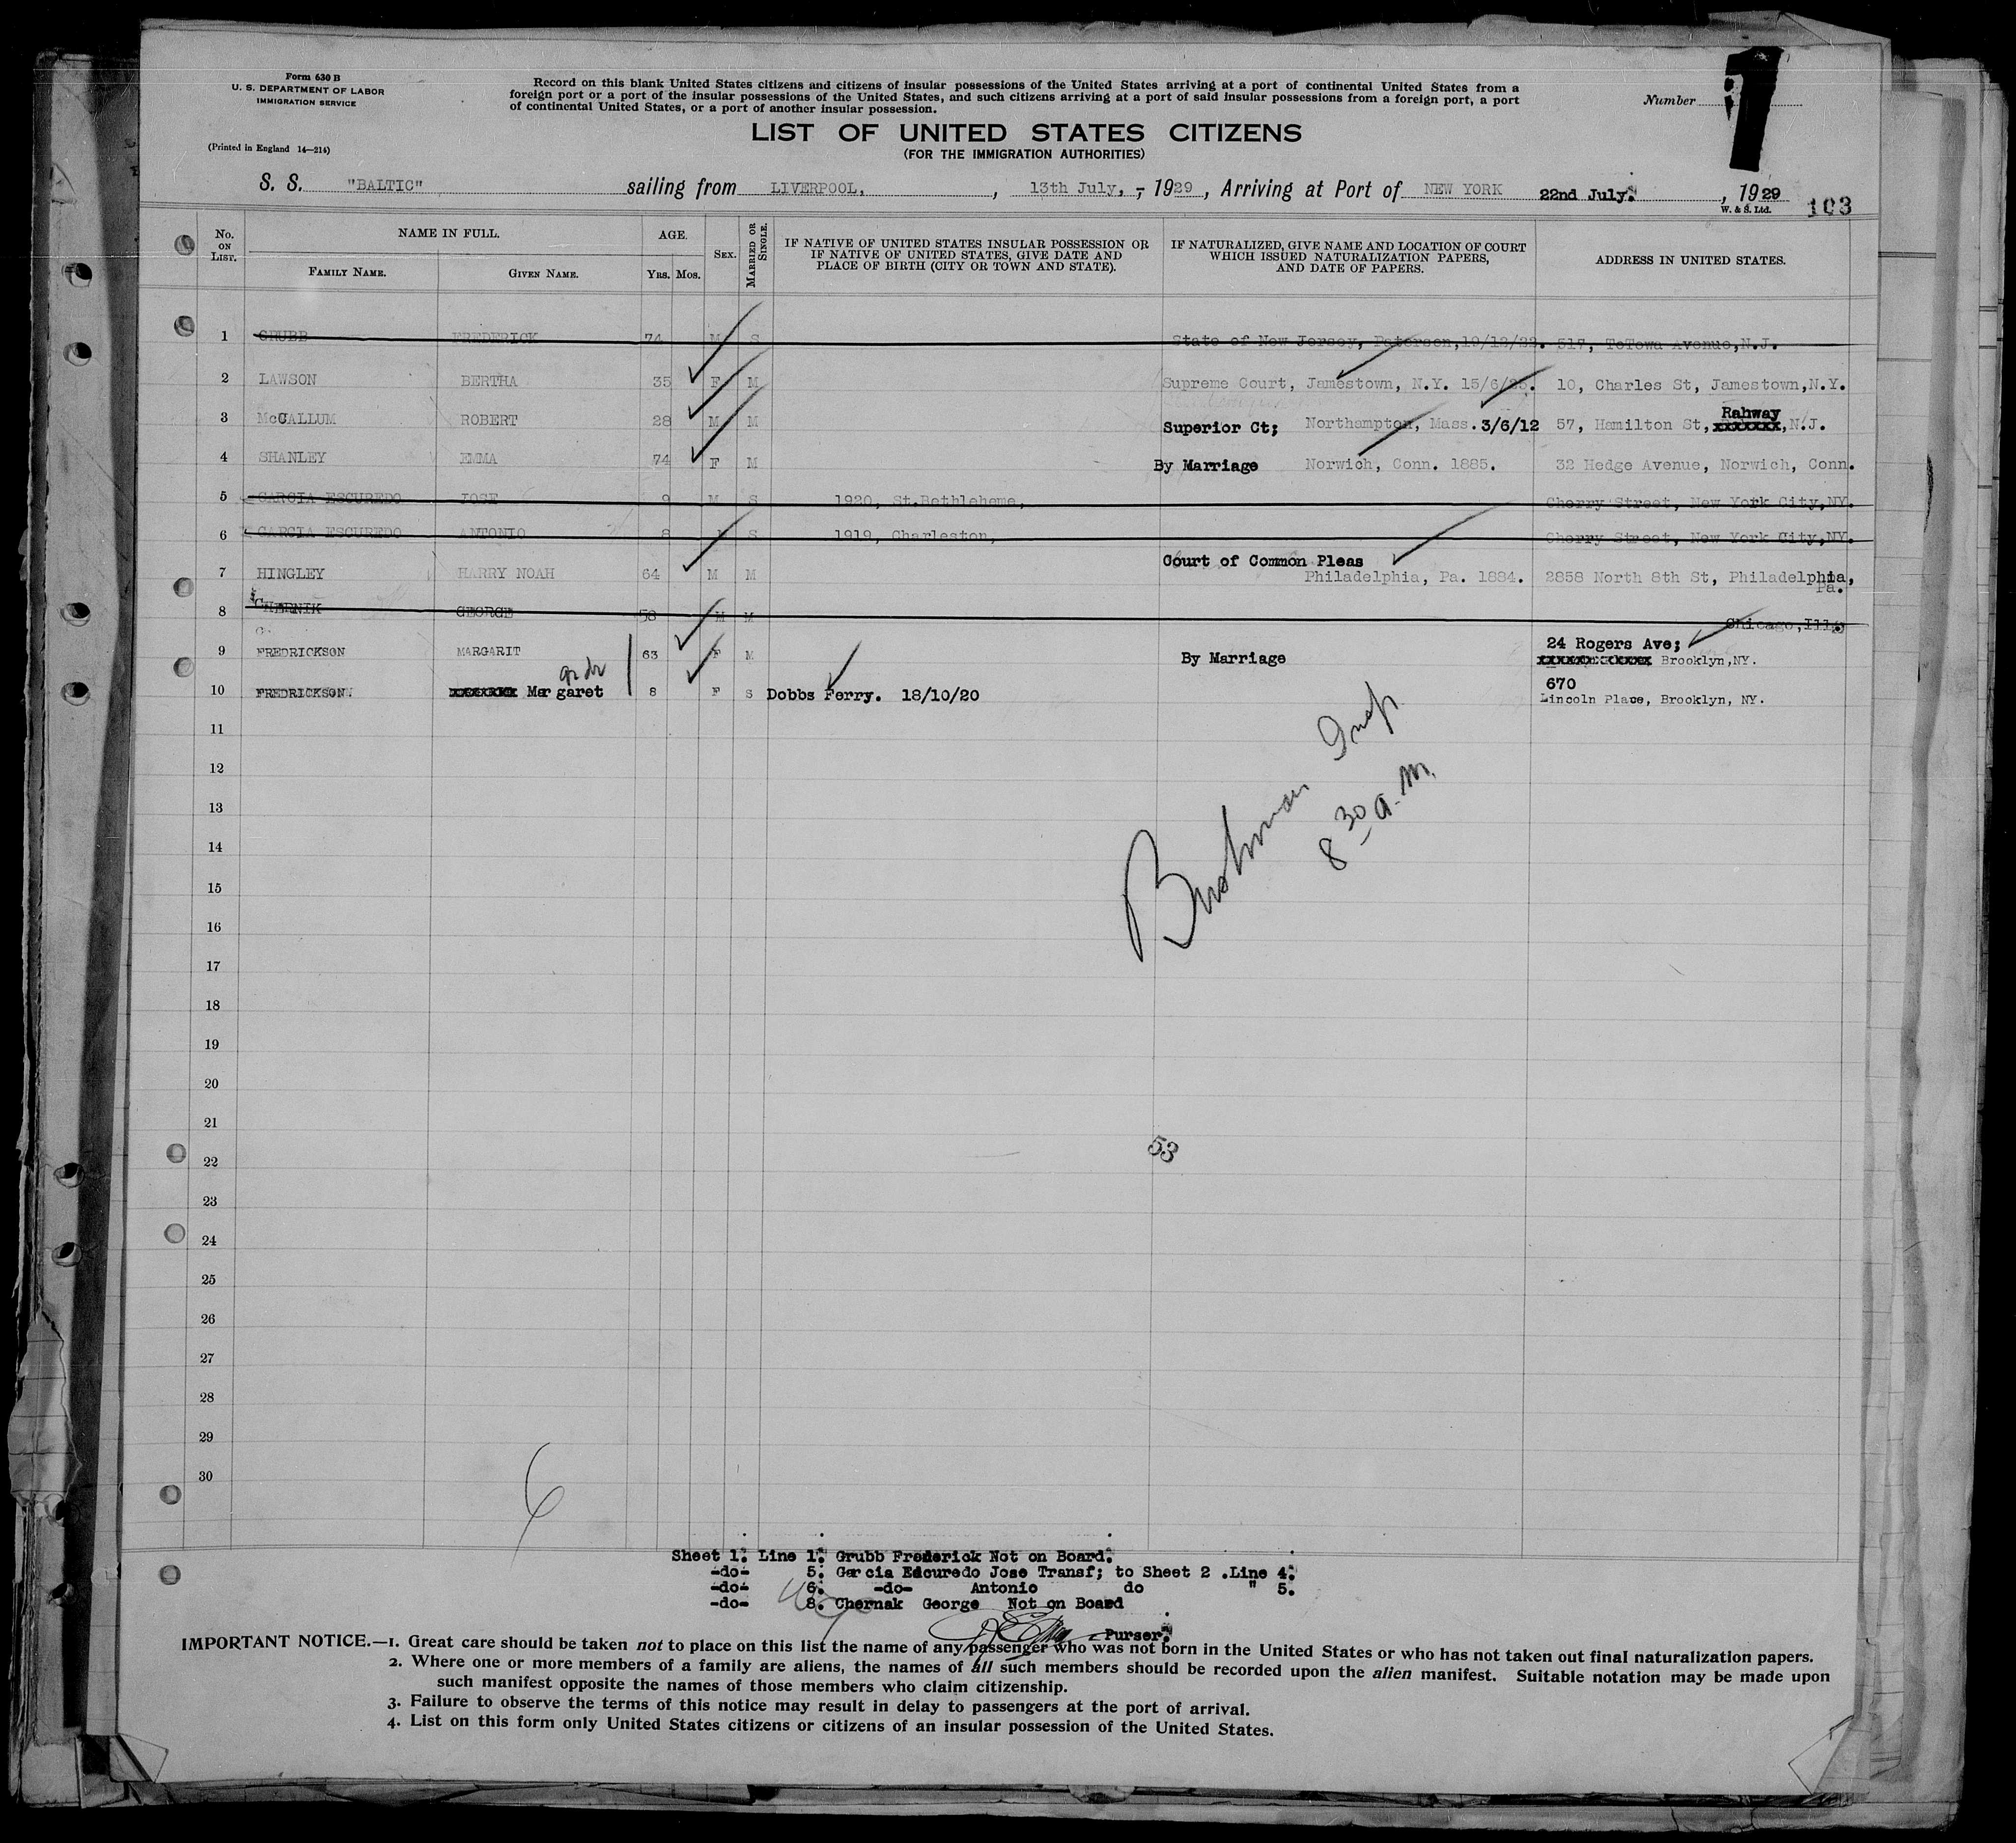 Form 630 B
U. S. DEPARTMENT OF LABOR
IMMIGRATION SERVICE
(Printed in England 14—214)
Record on this blank United States citizens and citizens of insular possessions of the United States arriving at a port of continental United States from a
foreign port or a port of the insular possessions of the United States, and such citizens arriving at a port of said insular possessions from a foreign port, a port
of continental United States, or a port of another insular possession.
Number 1
LIST OF UNITED STATES CITIZENS
(FOR THE IMMIGRATION AUTHORITIES)
S. S. "BALTIC" sailing from LIVERPOOL, , 13th July, - 1929, Arriving at Port of NEW YORK 22nd July. , 1929
W. & S. Ltd. 103
No. ON LIST. NAME IN FULL. FAMILY NAME. GIVEN NAME. AGE. YRS. MOS. SEX. MARRIED OR SINGLE. IF NATIVE OF UNITED STATES INSULAR POSSESSION OR IF NATIVE OF UNITED STATES, GIVE DATE AND PLACE OF BIRTH (CITY OR TOWN AND STATE). IF NATURALIZED, GIVE NAME AND LOCATION OF COURT WHICH ISSUED NATURALIZATION PAPERS, AND DATE OF PAPERS. ADDRESS IN UNITED STATES.
1 GRUBB FREDERICK 74 M S State of New Jersey, Paterson, 19/12/22. 517, ToTowa Avenue, N.J.
2 LAWSON BERTHA 35 F M Supreme Court, Jamestown, N.Y. 15/6/25. 10, Charles St, Jamestown, N.Y.
3 McCALLUM ROBERT 28 M M Superior Ct; Northampton, Mass. 3/6/12 57, Hamilton St, Rahway xxxxxxx, N.J.
4 SHANLEY EMMA 74 F M By Marriage Norwich, Conn. 1885. 32 Hedge Avenue, Norwich, Conn.
5 GARCIA ESCUREDO JOSE 9 M S 1920, St.Bethleheme, Cherry Street, New York City, NY.
6 GARCIA ESCUREDO ANTONIO 8 M S 1919, Charleston, Cherry Street, New York City, NY.
7 HINGLEY HARRY NOAH 64 M M Court of Common Pleas Philadelphia, Pa. 1884. 2858 North 8th St, Philadelphia, Pa.
8 CHERNIK GEORGE 58 M M Chicago, Ill;
9 FREDRICKSON MARGARIT 63 F M By Marriage 24 Rogers Ave; Brooklyn, NY.
10 FREDRICKSON. Margaret 8 F S Dobbs Ferry. 18/10/20 670 Lincoln Place, Brooklyn, NY.
11
12
13
14
15
16
17
18
19
20
21
22
23
24
25
26
27
28
29
30
Insp.
8 30 a.m.
53
6
Sheet 1. Line 1. Grubb Frederick Not on Board.
-do- 5. Garcia Edcuredo Jose Transf; to Sheet 2 .Line 4.
-do- 6. -do- Antonio do " 5.
-do- 8. Chernak George Not on Board
Purser.
IMPORTANT NOTICE.—1. Great care should be taken not to place on this list the name of any passenger who was not born in the United States or who has not taken out final naturalization papers.
2. Where one or more members of a family are aliens, the names of all such members should be recorded upon the alien manifest. Suitable notation may be made upon
such manifest opposite the names of those members who claim citizenship.
3. Failure to observe the terms of this notice may result in delay to passengers at the port of arrival.
4. List on this form only United States citizens or citizens of an insular possession of the United States.